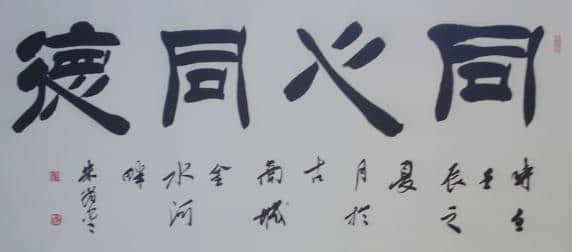 同心同德
时在壬辰之夏月於古商城金水河畔